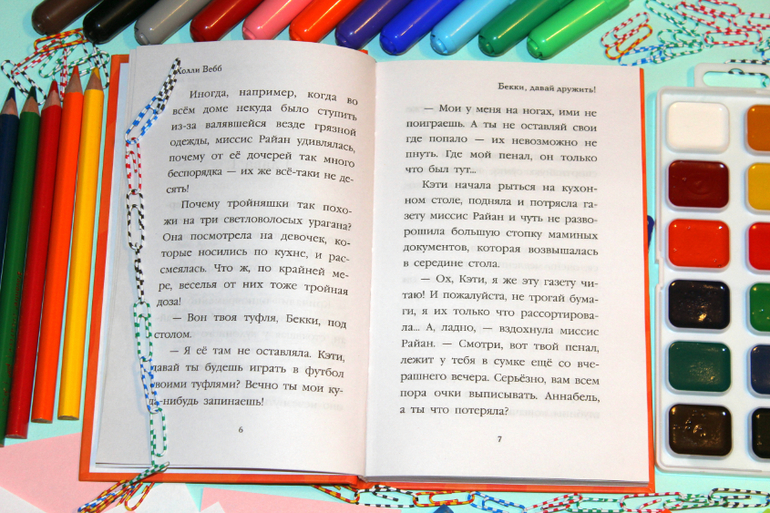 Холли Вебб
Иногда, например, когда во
всём доме некуда было ступить
из-за валявшейся везде грязной
одежды, миссис Райан удивлялась,
почему от её дочерей так много
беспорядка — их же всё-таки не де-
сять!
Почему тройняшки так похо-
жи на три светловолосых урагана?
Она посмотрела на девочек, ко-
торые носились по кухне, и рас-
смеялась. Что ж, по крайней ме-
ре, веселья от них тоже тройная
доза!
— Вон твоя туфля, Бекки, под
столом.
— Я её там не оставляла. Кэти,
давай ты будешь играть в футбол
своими туфлями? Вечно ты мои ку-
да-нибудь запинаешь!
6
Бекки, давай дружить!
— Мои у меня на ногах, ими не
поиграешь. А ты не оставляй свои
где попало — их невозможно не
пнуть. Где мой пенал, он только
что был тут...
Кэти начала рыться на кухон-
ном столе, подняла и потрясла га-
зету миссис Райан и чуть не разво-
рошила большую стопку маминых
документов, которая возвышалась
в середине стола.
— Ох, Кэти, я же эту газету чи-
таю! И пожалуйста, не трогай бума-
ги, я их только что рассортирова-
ла... А, ладно, — вздохнула миссис
Райан. — Смотри, вот твой пенал,
лежит у тебя в сумке ещё со вче-
рашнего вечера. Серьёзно, вам всем
пора очки выписывать. Аннабель,
а ты что потеряла?
7